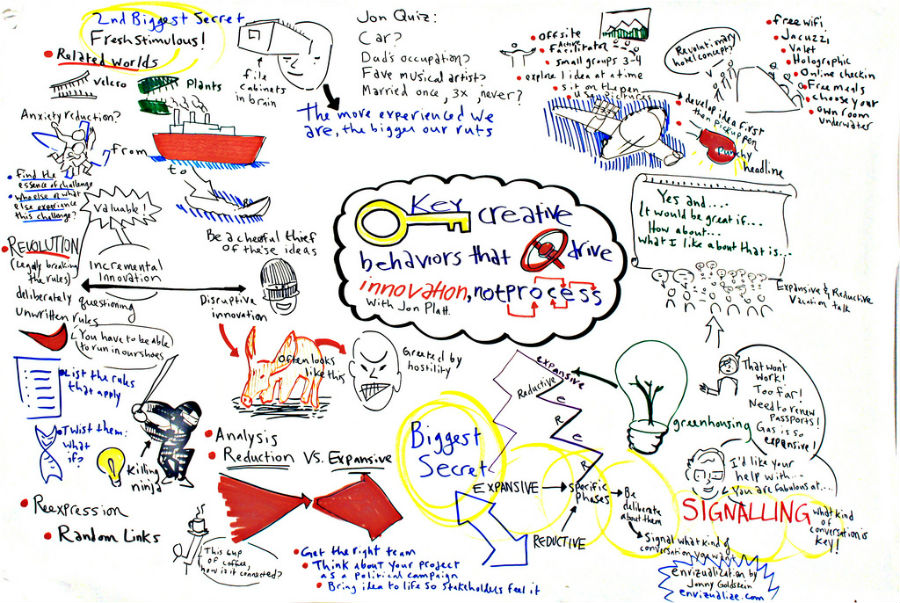 2nd Biggest Secret
Fresh Stimulous!
Related Worlds
Velcro
Plants
Anxiety reduction?
From
to
find the
essence of challenge
who else or what
else experience
this challenge?
Be a cheerful thief
of these ideas
file
cabinets
in brain
Jon Quiz:
Car?
Dad's occupation?
Fave musical artist?
Married once, 3x, never?
The more experienced we
are, the bigger our ruts
offsite
Active
Facilitate
small groups 3-4
explore 1 idea at a time
sit on the pen
use pictures
develop idea first
than pick up pen
punchy
headline
Revolutionary
hotel concept?
free wifi
Jacuzzi
Valet
Holographic
Online checkin
Free meds
choose your
own room
underwater
Yes and....
It would be great if...
How about...
What I like about that is...
Expansive & Reductive
Vacation
talk
Key creative
behaviors that drive
innovation, not process
With Jon Platt.
Valuable!
REVOLUTION
(Legally breaking
the rules)
deliberately questioning
Unwritten rules
Incremental
Innovation
Disruptive
innovation
You have to be able
to run in our shoes
List the rules
that apply
Twist them:
What
if?
Killing
ninja
Often looks
like this
Greeted by
hostility
Reexpression
Random Links
This cup
of coffee,
how is it connected?
Analysis
Reduction Vs. Expansive
Get the right team
Think about your project
as a political campaign
Bring idea to life so stakeholders feel it
Biggest
Secret
expansive
Reductive
E
R
E
R
EXPANSIVE
REDUCTIVE
specific
phases
Be
deliberate
about them
Signal what kind of
conversation you want
greenhousing
That wont
work!
Too far!
Need to renew
passports!
Gas is so
expensive!
I'd like your
help with...
You are fabulous at...
SIGNALLING
what kind
of
conversation is
key!
envizualization by
Jonny Goldstein
envizualize.com